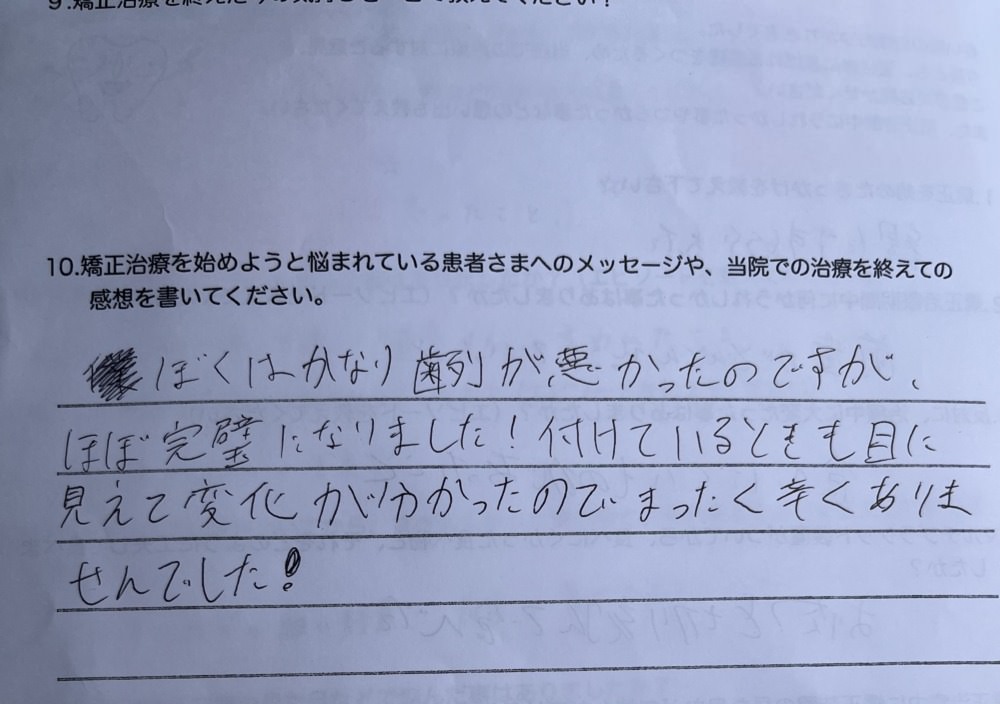 9.矯正治療を終えた今の気持ちを一言で教えてください！
10.矯正治療を始めようと悩まれている患者さまへのメッセージや、当院での治療を終えての
感想を書いてください。
ぼくはかなり歯列が悪かったのですが、
ほぼ完璧になりました！付けているときも目に
見えて変化が分かったのでまったく辛くありま
せんでした！